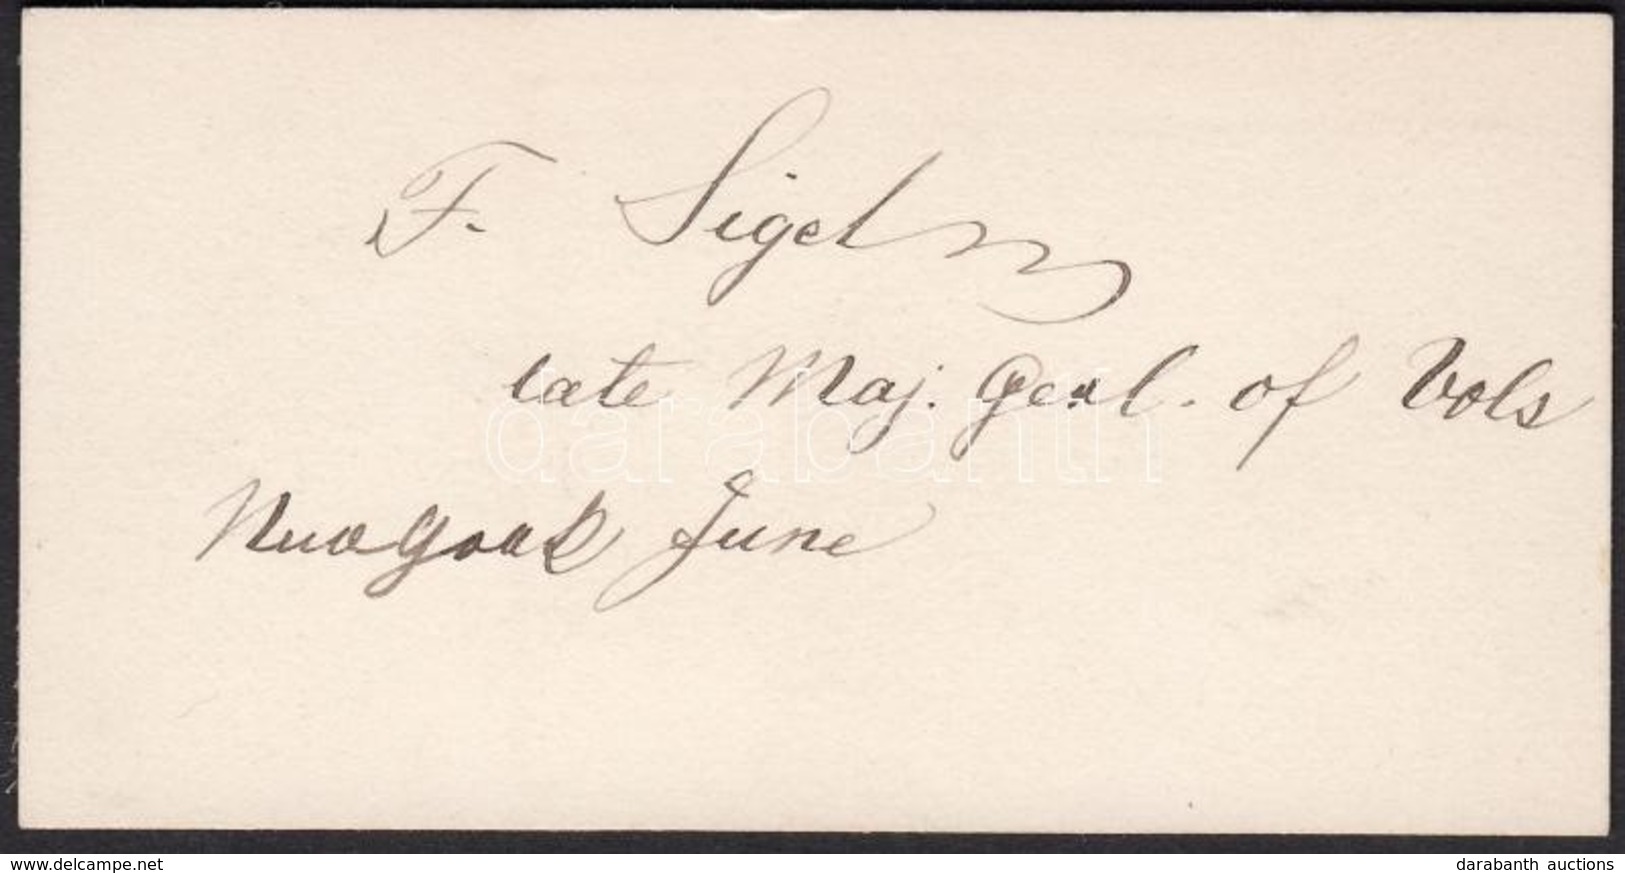 F. Sigel
late Maj. Genl. of Vols
darabanth
New York June
www.delcampe.net
darabanth auctions